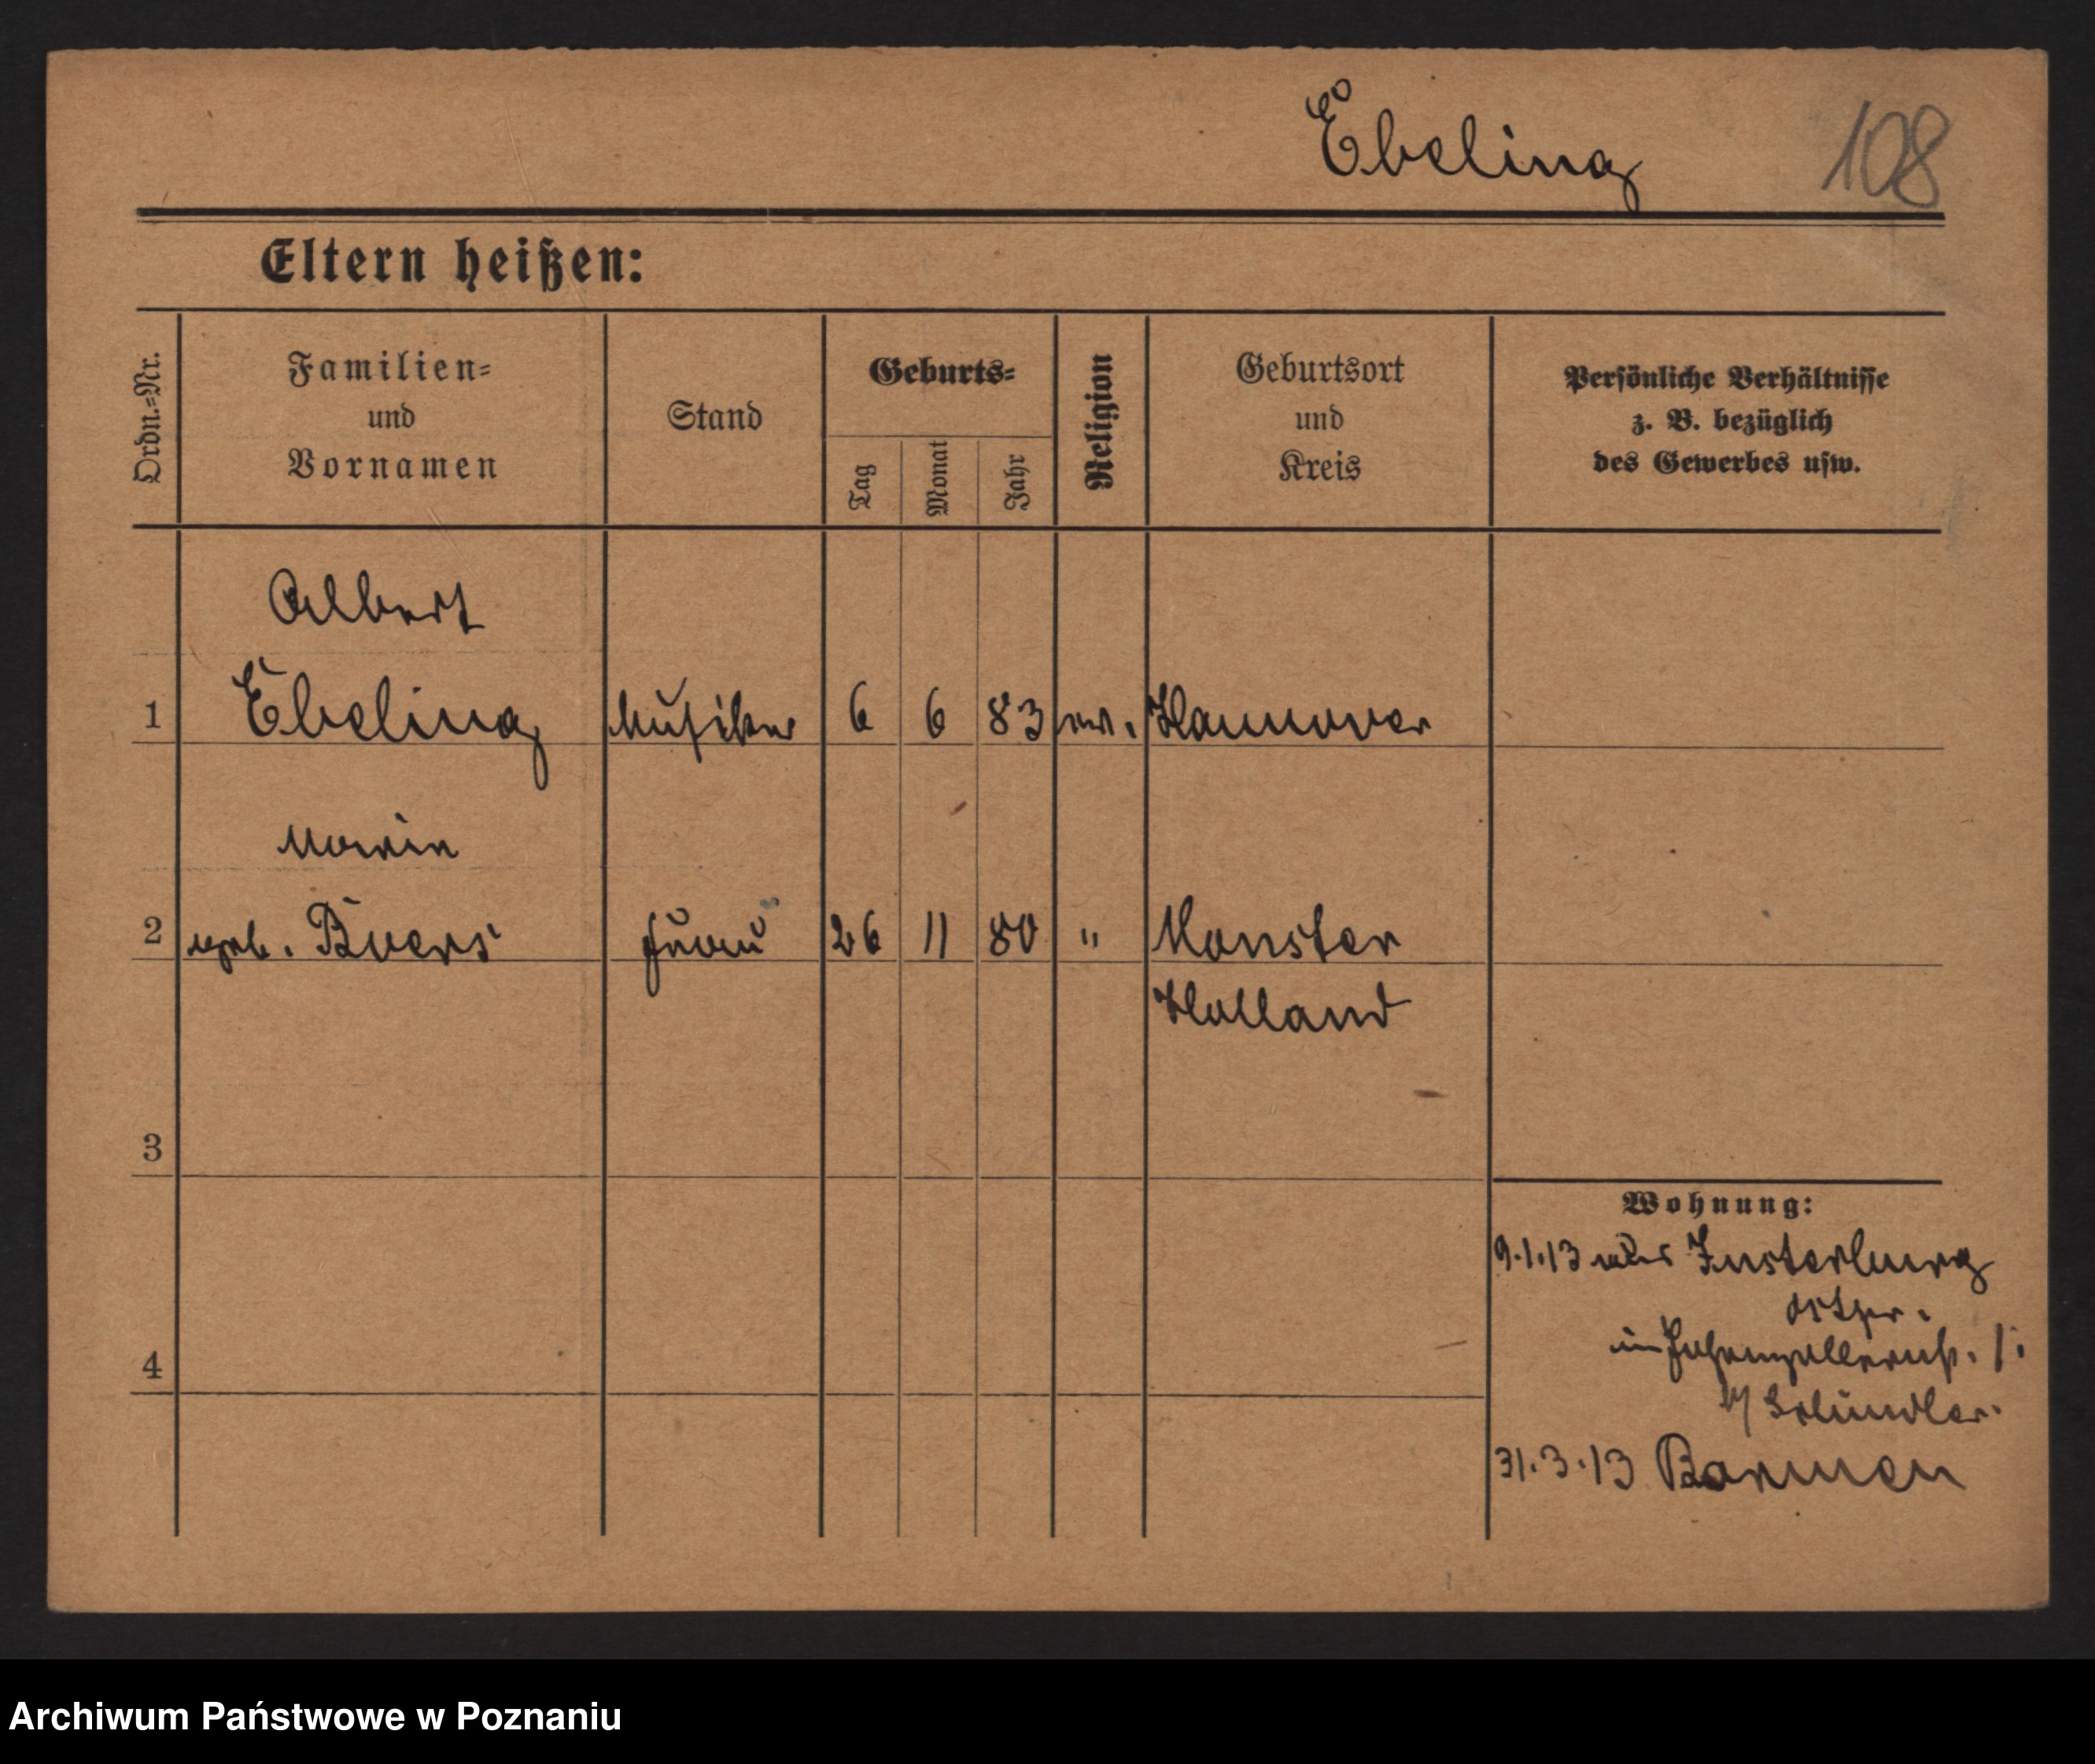 Ebeling 108
Eltern heißen:
Ordn.-Nr.
Familien-
und
Vornamen
Stand
Geburts-
Tag
Monat
Jahr
Religion
Geburtsort
und
Kreis
Persönliche Verhältnisse
z. B. bezüglich
des Gewerbes usw.
Albert
1 Ebeling Musiker 6 6 83 ev. Hannover
Maria
2 geb. Buers Frau 26 11 80 " Monster
Holland
3
4
Wohnung:
9.1.13 aus Insterburg
Ostpr.
in Hohenzollernstr. 1.
b/ Schindler.
31.3.13 Barmen
Archiwum Państwowe w Poznaniu